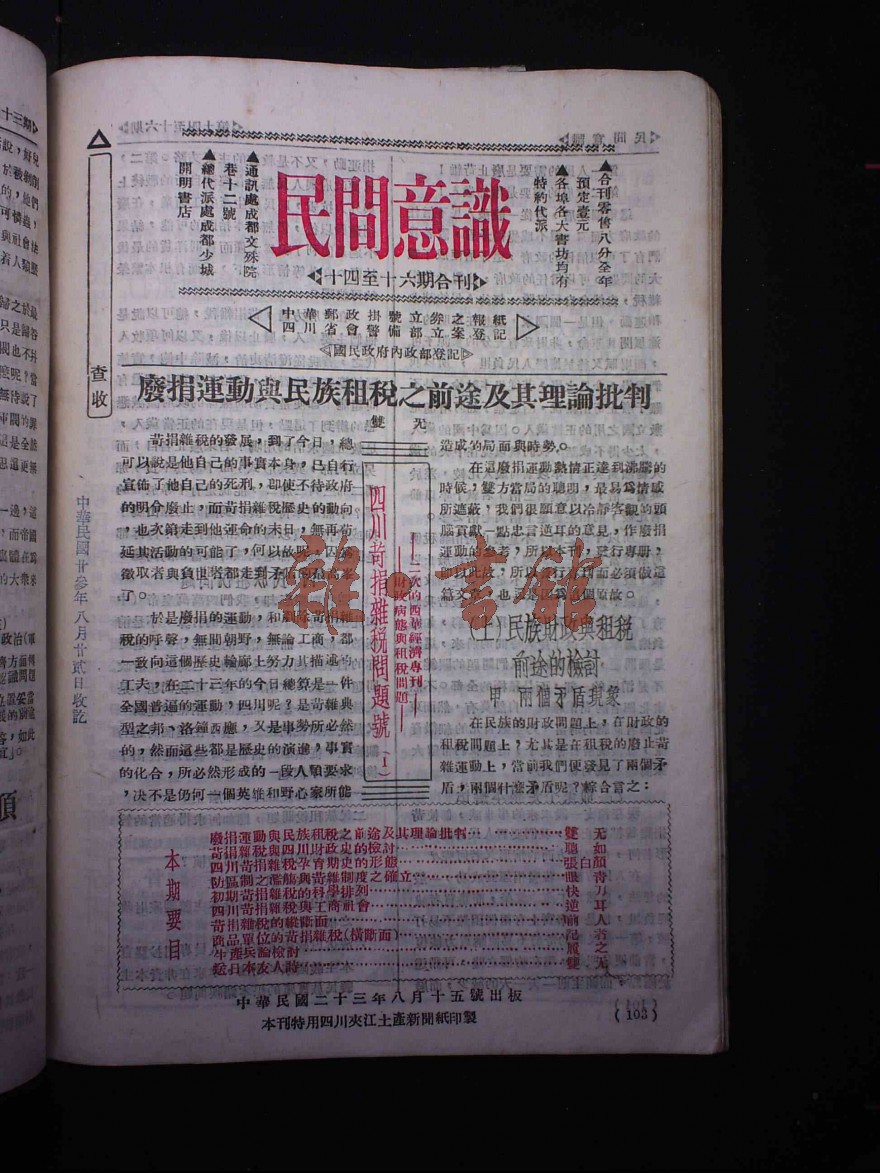 民間意識
十四至十六期合刊
▲合刊零售八分全年
預定壹元
▲各埠各大書坊均有
特約代派
▲通訊處成都文殊院
巷十二號
▲總代派處成都少城
開明書店
中華郵政掛號立券之報紙
四川省會警備部立案登記
國民政府內政部登記
廢捐運動與民族租稅之前途及其理論批判
雙无
苛捐雜稅的發展,到了今日,總
可以說是他自己的事實本身,已自行
宣佈了他自己的死刑,即使不待政府
的明令廢止,而苛捐雜稅歷史的動向
,也次第走到他運命的末日,無再苟
延其活動的可能了,何以故呢
徵取者與負担者都走到矛盾的
了。
於是廢捐的運動,和
稅的呼聲,無間朝野,無論工商,都
一致向這個歷史輪廓上努力其描運的
工夫,在二十三年的今日總算是一件
全國普遍的運動,四川呢?是苛雜典
型之邦,洛鐘西應,又是事勢所必然
的,然而這些都是歷史的演進,事實
的化合,所必然形成的一段人類要求
,決不是仍何一個英雄和野心家所能
四川苛捐雜稅問題號(I)
二次的西華經濟專刊
財政病態與租稅問題
造成的局面與時勢。
在這廢捐運動熱情正達到沸騰的
時候,雙方當局的聰明,最易為情感
所遮蔽,我們很願意以冷靜客觀的頭
腦貢獻一點忠言逆耳的意見,作廢捐
運動的參考,所以本刊,發行專册,
即以此故,所以發行本刊而必須做這
篇文章,也還是以為這個原故。
(上)民族財政與租稅
前途的檢討
甲 兩個矛盾現象
在民族的財政問題上,在財政的
租稅問題上,尤其是在租稅的廢止苛
雜運動上,當前我們便發見了兩個矛
盾,兩個什麼矛盾呢?綜合言之:
本期要目
廢捐運動與民族租稅之前途及其理論批判 雙无
苛捐雜稅與四川財政史的檢討 聽如
四川苛捐雜稅孕育期史的形態 張白顏
防區制之濫觴與苛雜制度之確立
初期苛捐雜稅的科學排列 快刀
四川苛捐雜稅與工商社會 逆耳
苛捐雜稅的縱斷面
商品單位的苛捐雜稅(橫斷面)
生產兵論檢討
雙无
中華民國二十三年八月十五號出版
本刊特用四川夾江土產新聞紙印製
(103)
查收
中華民國廿叁年八月廿貳日收訖
雜·書館